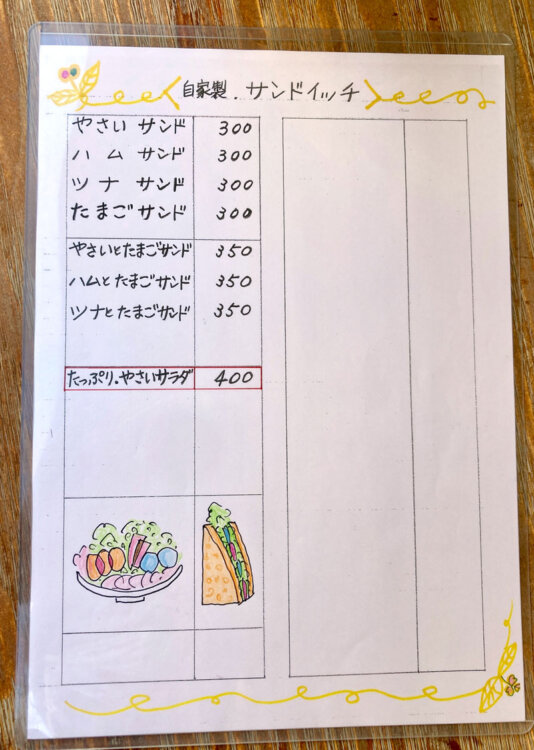 自家製.サンドイッチ
やさい サンド 300
ハム サンド 300
ツナ サンド 300
たまごサンド 300
やさいとたまごサンド 350
ハムとたまごサンド 350
ツナとたまごサンド 350
たっぷり.やさいサラダ 400